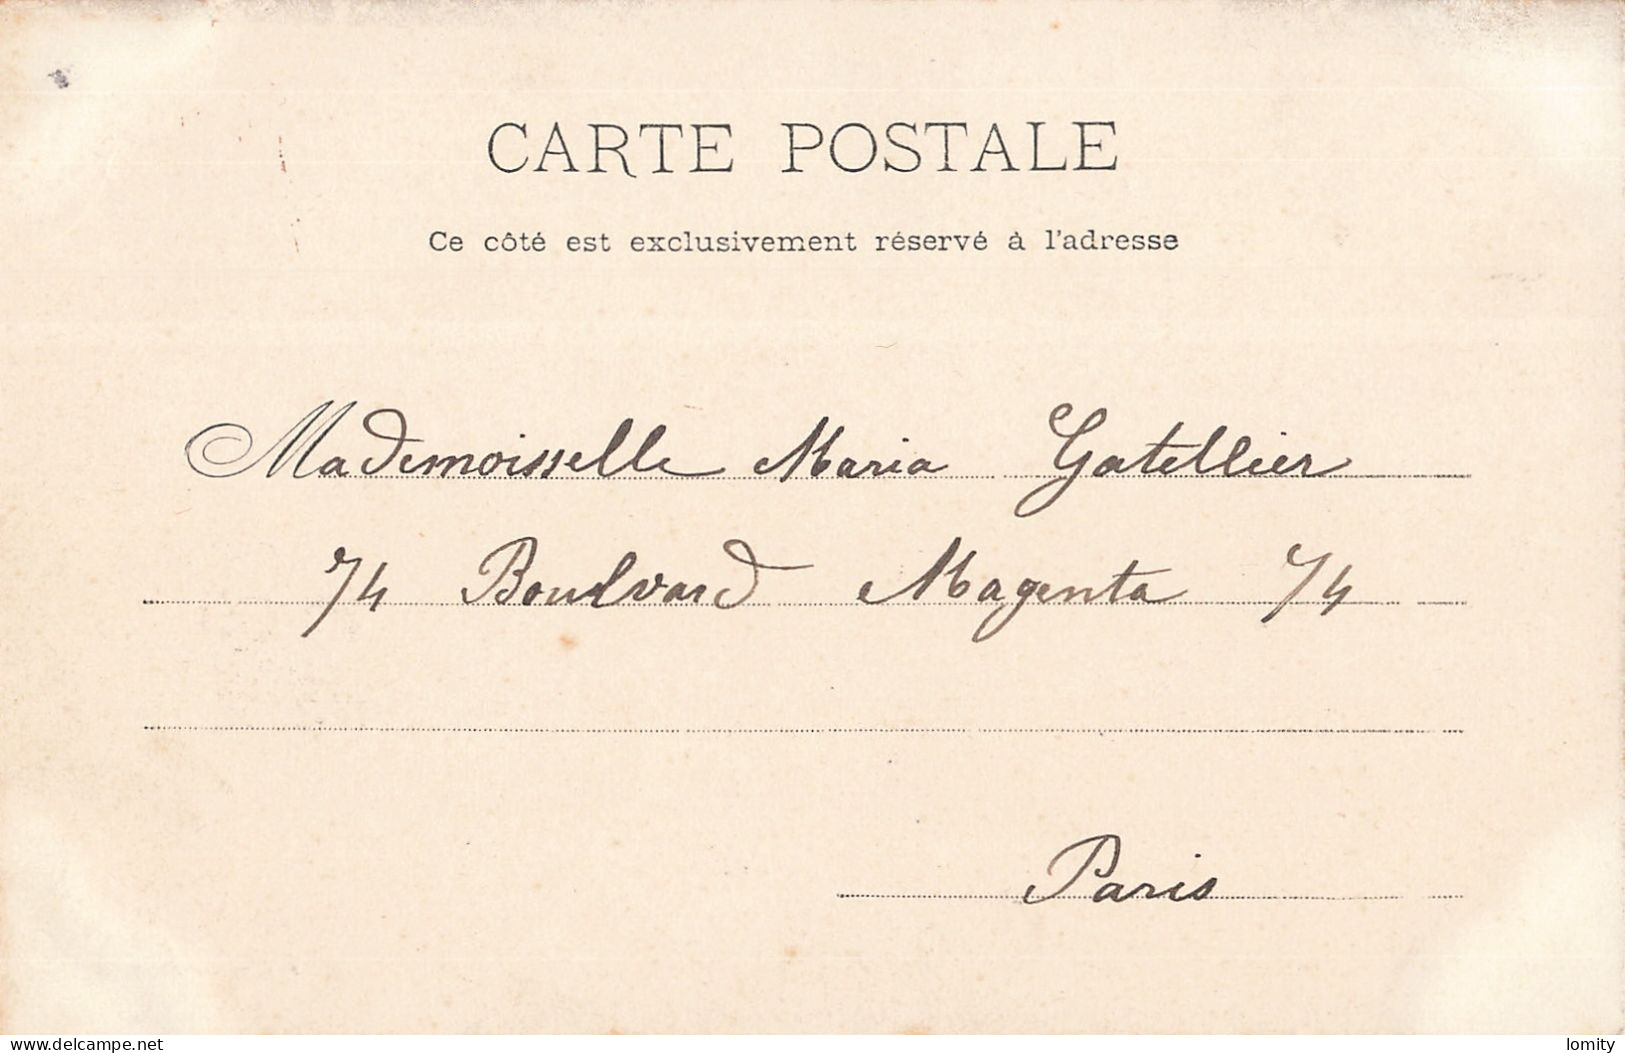 CARTE POSTALE
Ce côté est exclusivement réservé à l'adresse
Mademoisselle Maria Gatellier
74 Boulvard Magenta 74
Paris
www.delcampe.net
lomity